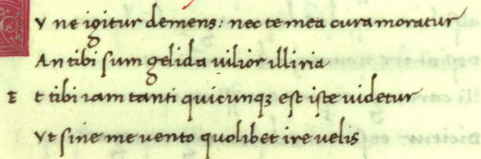 V ne igitur demens: nec te mea cura moratur
An tibi sum gelida uilior illiria
E t tibi iam tanti quicunqꝫ est iste uidetur
Vt sine me uento quolibet ire uelis